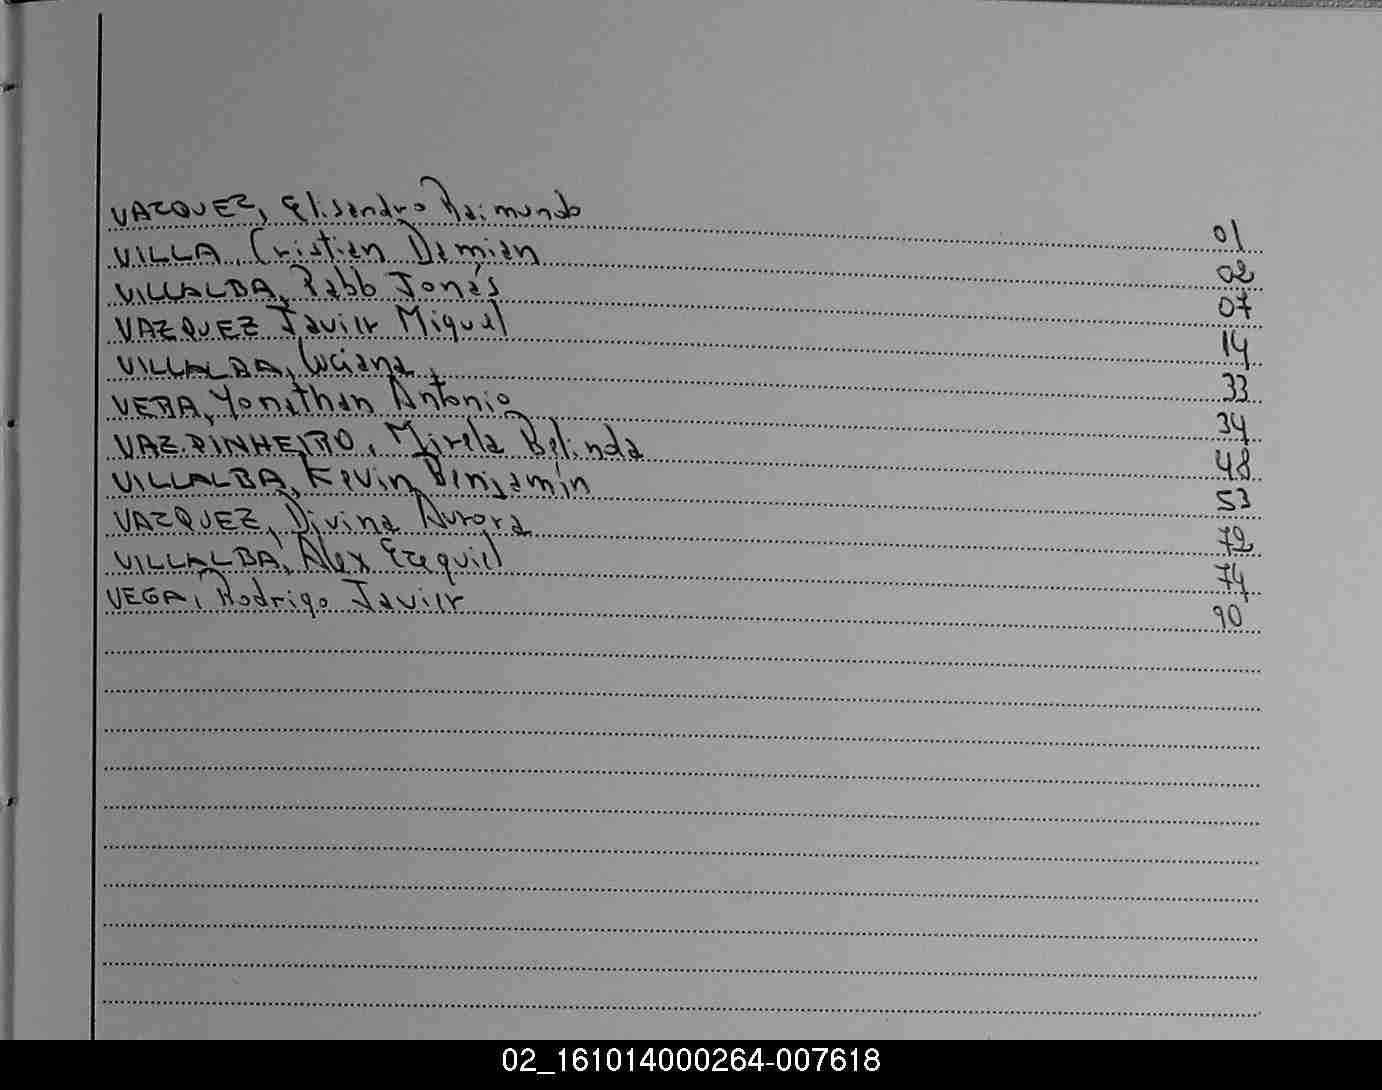 VAZQUEZ, Elisandro Raimundo 01
VILLA, Cristian Damian 02
VILLALBA, Pablo Jonás 07
VAZQUEZ Javier Miguel 14
VILLALBA, Luciana 33
VERA, Yonathan Antonio 34
VAZ.PINHEIRO, Mirela Belinda 48
VILLALBA, Kevin Benjamín 53
VAZQUEZ, Divina Aurora 72
VILLALBA, Alex Ezequiel 74
VEGA, Rodrigo Javier 90
02_161014000264-007618